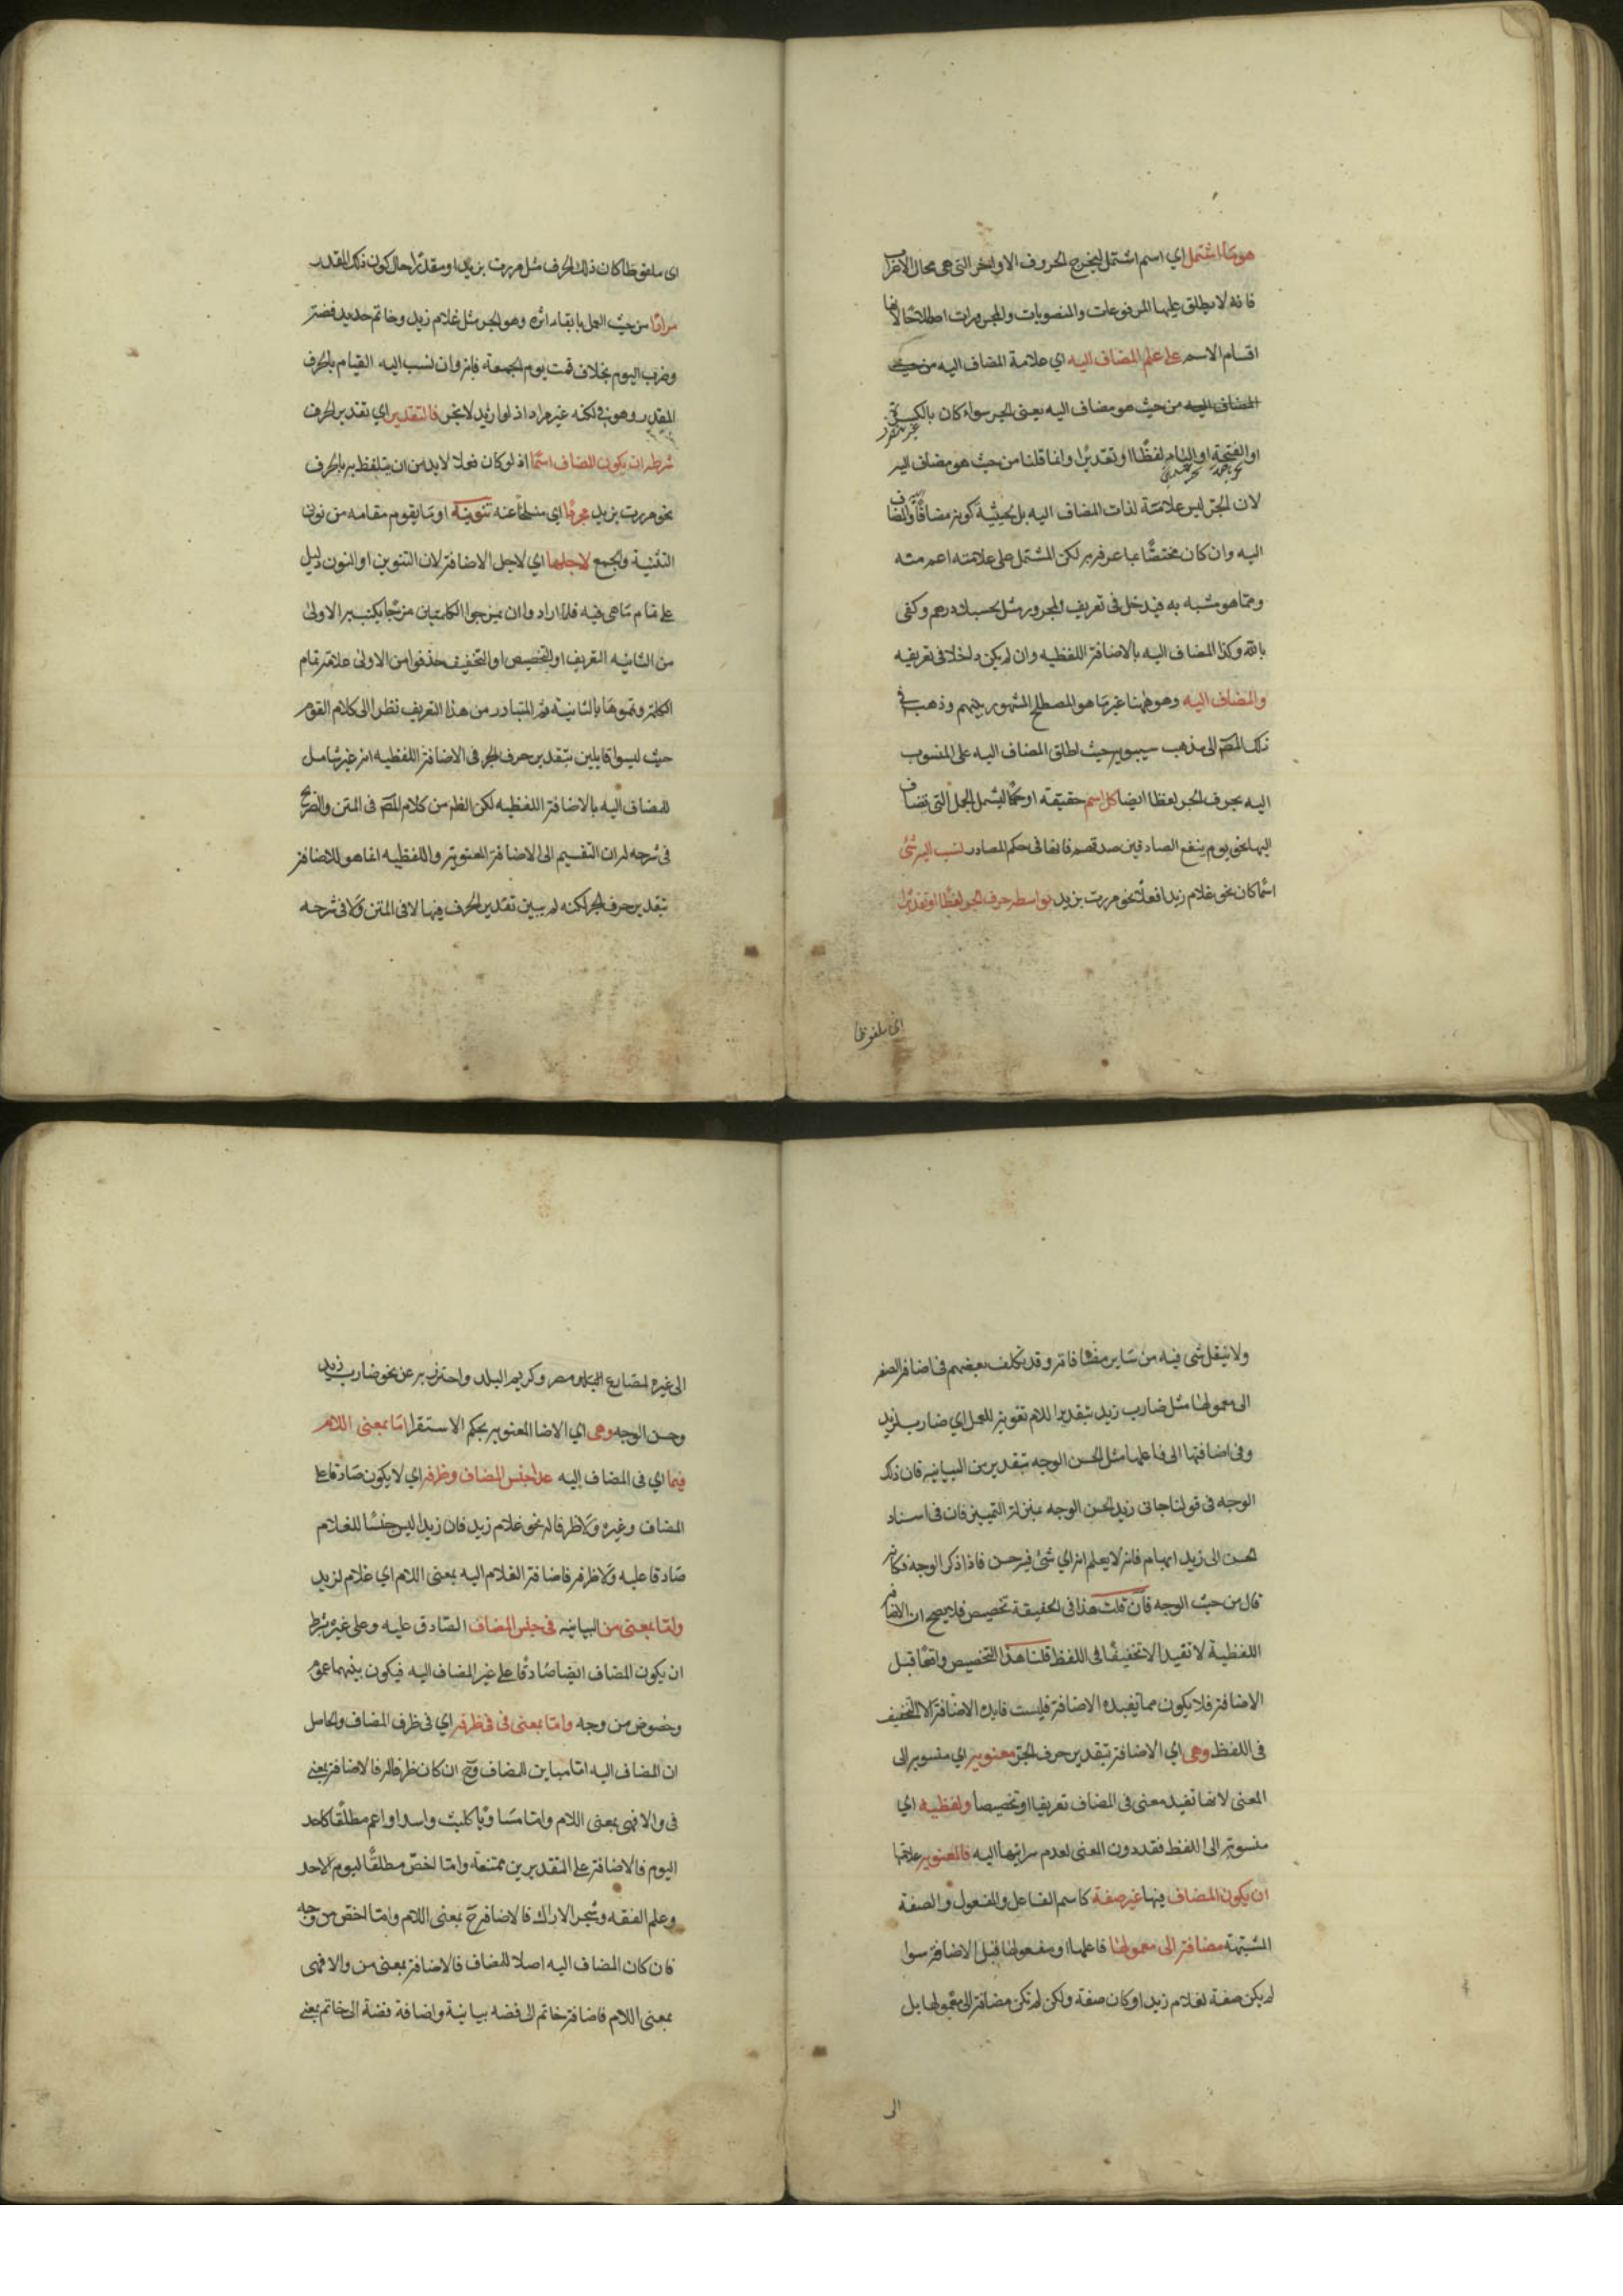 هو ما اشتمل اي اسم اشتمل ليخرج الحروف الاواخر التي هي محال الاعراب
فانه لا يطلق عليها المرفوعات والمنصوبات والمجرورات اصطلاحا لانها
اقسام الاسم على علم المضاف اليه اي علامة المضاف اليه من حيث
المضاف اليه من حيث هو مضاف اليه يعني الجر سواء كان بالكسرة
او الفتحة او الياء لفظا او تقديرا وانما قلنا من حيث هو مضاف اليه
لان الجر ليس علامة لذات المضاف اليه بل لحيثية كونه مضافا اليه والمضاف
اليه وان كان مختصا بما عرف به لكن المشتمل على علامته اعم منه
ومما هو مشبه به فيدخل في تعريف المجرور مثل بحسبك درهم وكفى
بالله وكذا المضاف اليه بالاضافة اللفظيه وان لم يكن داخلا في تعريفه
والمضاف اليه وهو ههنا غير ما هو المصطلح المشهور بينهم وذهب في
ذلك المصّ الى مذهب سيبويه حيث اطلق المضاف اليه على المنسوب
اليه بحرف الجر لفظا ايضا كل اسم حقيقة او حكما ليشمل الجمل التي تضاف
اليها نحو يوم ينفع الصادقين صدقهم فانها في حكم المصادر نسب اليه شئ
اسما كان نحو غلام زيد او فعلا نحو مررت بزيد بواسطه حرف الجر لفظا او تقديرا
اي ملفوظا
اي ملفوظا كان ذلك الحرف مثل مررت بزيد او مقدرا حال كون ذلك المقدر
مرادا من حيث العمل بابقاء اثره وهو الجر مثل غلام زيد وخاتم حديد فضة
وضرب اليوم بخلاف قمت يوم الجمعة فانه وان نسب اليه القيام بالحرف
المقدر وهو في لكنه غير مراد اذ لو اريد لانجر فالتقدير اي تقدير الحرف
شرطه ان يكون المضاف اسما اذ لو كان فعلا لا بد من ان يتلفظ به بالحرف
نحو مررت بزيد مجردا اي منسلخا عنه تنوينه او ما يقوم مقامه من نوني
التثنية والجمع لاجلها اي لاجل الاضافة لان التنوين او النون دليل
على تمام ما هي فيه فلما ارادوا ان يمزجوا الكلمتين مزجا يكتسب به الاولى
من الثانيه التعريف او التخصيص او التخفيف حذفوا من الاولى علامة تمام
الكلمة وتمموها بالثانية ثم المتبادر من هذا التعريف نظرا الى كلام القوم
حيث ليسوا قايلين بتقدير حرف الجر في الاضافة اللفظيه انه غير شامل
للمضاف اليه بالاضافة اللفظيه لكن الظم من كلام المصّ في المتن والصريح
في شرحه له ان التقسيم الى الاضافة المعنوية واللفظيه انما هو للاضافة
بتقدير حرف الجر لكنه لم يبين تقدير الحرف فيها لا في المتن ولا في شرحه
ولا ينقل شئ فيه من ساير مصنفاته وقد تكلف بعضهم في اضافة الصفة
الى معمولها مثل ضارب زيد بتقدير اللام تقوية للعمل اي ضارب لزيد
وفي اضافتها الى فاعلها مثل الحسن الوجه بتقدير من البيانيه فان ذلك
الوجه في قولنا جاني زيد الحسن الوجه بمنزلة التمييز فان في اسناد
الحسن الى زيد ابهام فانه لا يعلم انه اي شئ فيه حسن فاذا ذكر الوجه فكانه
قال من حيث الوجه فان قلت هذا في الحقيقة تخصيص فلا يصح ان الاضافة
اللفظية لا تفيد الا تخفيفا في اللفظ قلنا هذا التخصيص واقعا قبل
الاضافة فلا يكون مما يفيده الاضافة فليست فايدة الاضافة الا التخفيف
في اللفظ وهي اي الاضافة بتقدير حرف الجر معنويه اي منسوبه الى
المعنى لانها تفيد معنى في المضاف تعريفا او تخصيصا ولفظيه اي
منسوبة الى اللفظ فقد دون المعنى لعدم سرايتها اليه فالمعنويه علامتها
ان يكون المضاف فيها غير صفة كاسم الفاعل والمفعول والصفة
المشبهة مضافة الى معمولها فاعلها او مفعولها قبل الاضافة سوا
لم يكن صفة لغلام زيد او كان صفة ولكن لم تكن مضافة الى معمولها بل
الى
الى غيره لمصارع البلد ومصر وكريم البلد واحترز به عن نحو ضارب زيد
وحسن الوجه وهي اي الاضا المعنويه بحكم الاستقرا اما بمعنى اللام
فيما اي في المضاف اليه عدا جنس المضاف وظرفه اي لا يكون صادقا على
المضاف وغيره ولا ظرفا له نحو غلام زيد فان زيدا ليس جنسا للغلام
صادقا عليه ولا ظرفه فاضافة الغلام اليه بمعنى اللام اي غلام لزيد
واما بمعنى من البيانيه في جنس المضاف الصادق عليه وعلى غيره بشرط
ان يكون المضاف ايضا صادقا على غير المضاف اليه فيكون بينهما عموم
وخصوص من وجه واما بمعنى في في ظرفه اي في ظرف المضاف والحاصل
ان المضاف اليه اما مباين للمضاف وح ان كان ظرفا له فالاضافة بمعنى
في والا فهي بمعنى اللام واما مساويا كليث واسد او اعم مطلقا كاحد
اليوم فالاضافة على التقديرين ممتنعة واما اخص مطلقا ليوم الاحد
وعلم الفقه وشجر الاراك فالاضافة ح بمعنى اللام واما اخص من وجه
فان كان المضاف اليه اصلا للمضاف فالاضافة بمعنى من والا فهي
بمعنى اللام فاضافة خاتم الى فضه بيانية واضافة فضة الى خاتم بمعنى